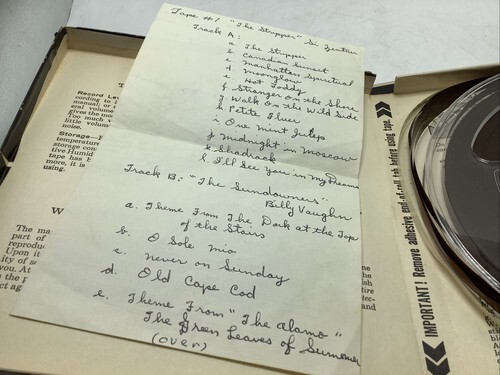 Tape #1 "The Stripper" Si Zentner
Track A:
a The Stripper
b Canadian Sunset
c Manhattan Spiritual
d Moonglow
e Hot Toddy
f Stranger on the Shore
g Walk on the Wild Side
h Petite Fluer
i One mint Julep
j midnight in Moscow
k Shadrack
l I'll See You in my Dreams
Track B: "The Sundowners"
Billy Vaughn
a. Theme From The Dark at the Top
of the Stairs
b. O Sole mio
c. never on Sunday
d. Old Cape Cod
e. Theme From "The Alamo"
The Green Leaves of Summer
(over)
Record Lev
cording to
manual or
eral volume
Too much v
little volum
noise.
Storage—
temperature
storage con
tive Humid
tape has b
more, it is
using.
W
The ma
part of
reproduc
Upon it
ity of s
you. At
the p
ct ag
IMPORTANT! Remove adhesive end-of-roll tab before using tape.